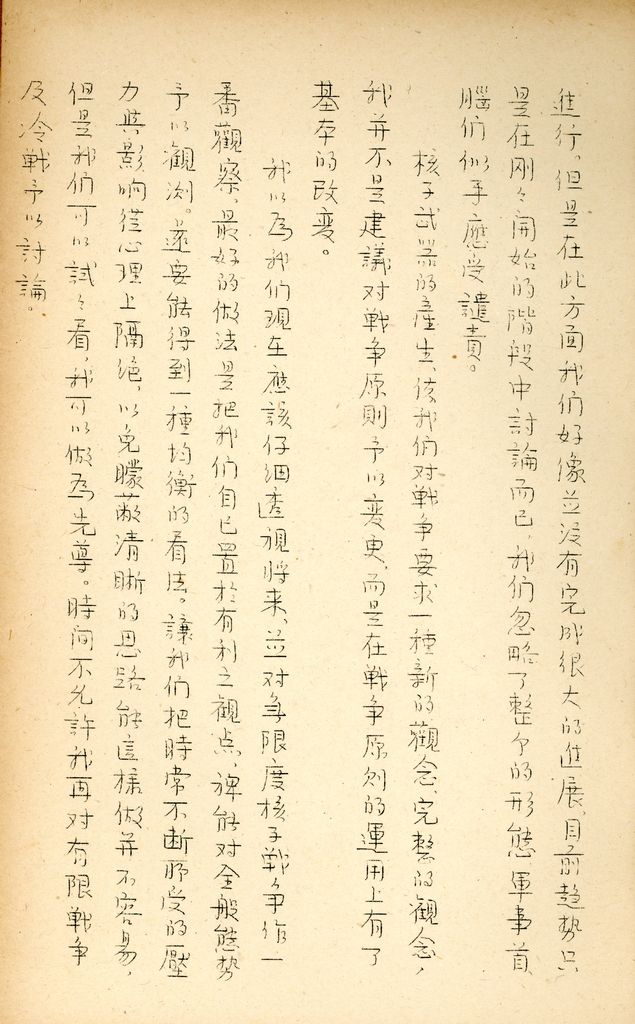 進行。但是在此方面我们好像並没有完成很大的進展，目前趋势只
是在刚々開始的階段中討論而已，我们忽略了整个的形態軍事首
腦们似乎應受譴責。
核子武器的產生、使我们对戰争要求一種新的觀念、完整的觀念，
我并不是建議对戰争原則予以变更、而是在戰争原则的運用上有了
基本的改变。
我以為我们現在應該仔细透視將来、並对無限度核子戰争作一
番觀察、最好的做法是把我们自己置於有利之観点、裨能对全般態势
予以観测。還要能得到一種均衡的看法。讓我们把時常不断所受的壓
力與影响從心理上隔绝、以免矇蔽清晰的思路能這樣做并不容易，
但是我们可以試々看，我可以做為先導。時间不允許我再对有限戰争
及冷戰予以討論。